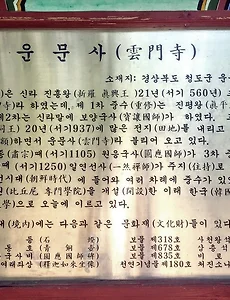 운문사(雲門寺)
소재지: 경상북도 청도군 운
은 신라 진흥왕(新羅 眞興王)21년(서기 560년)
라 하였는데, 제 1차 중수(重修)는 진평왕(眞平
제2차는 신라말에 보양국사(寶讓國師)가 하였다.
20년(서기937)에 많은 전지(田地)를 내리고
하면서 운문사(雲門寺)라 불리어 오고 있다.
(肅宗)때(서기1105) 원응국사(圓應國師)가 3차
때(서기1250)일연선사(一然禪師)가 주지(住持)로
선시대(朝鮮時代) 에 들어와 여러 차례에 중수가 있
比丘尼 專門學院)을 개설(開設)한 이래 한국(韓國
으로 오늘에 이르고 있다.
(境內)에는 다음과 같은 문화재(文化財)들이 있다
石 보물 제318호 사천왕석
호 靑銅 보물 제678호 삼층석
국사비(圓應國師碑) 보물 제835호 비로
여래좌상(釋迦如來坐像) 천연기념물제180호 처진소나